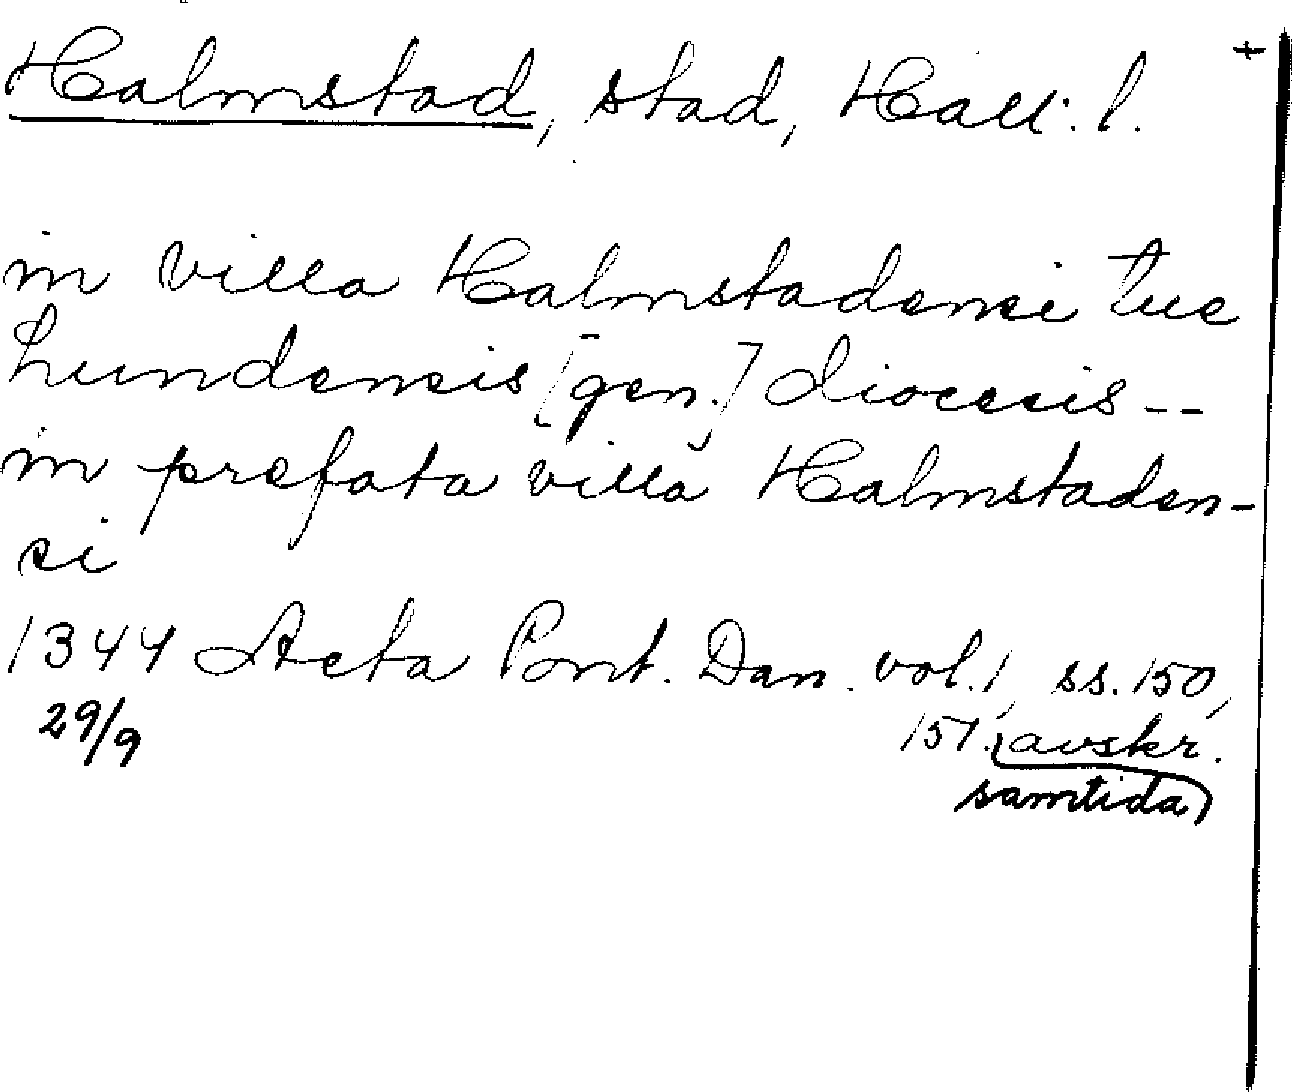 Halmstad, stad, Hall. l. +
in villa Halmstadensi tue
Lundensis [gen.] diocesis --
in prefata villa Halmstaden-
si
1344 Acta Pont. Dan. vol. 1, ss. 150,
29/9 151. avskr.
samtida